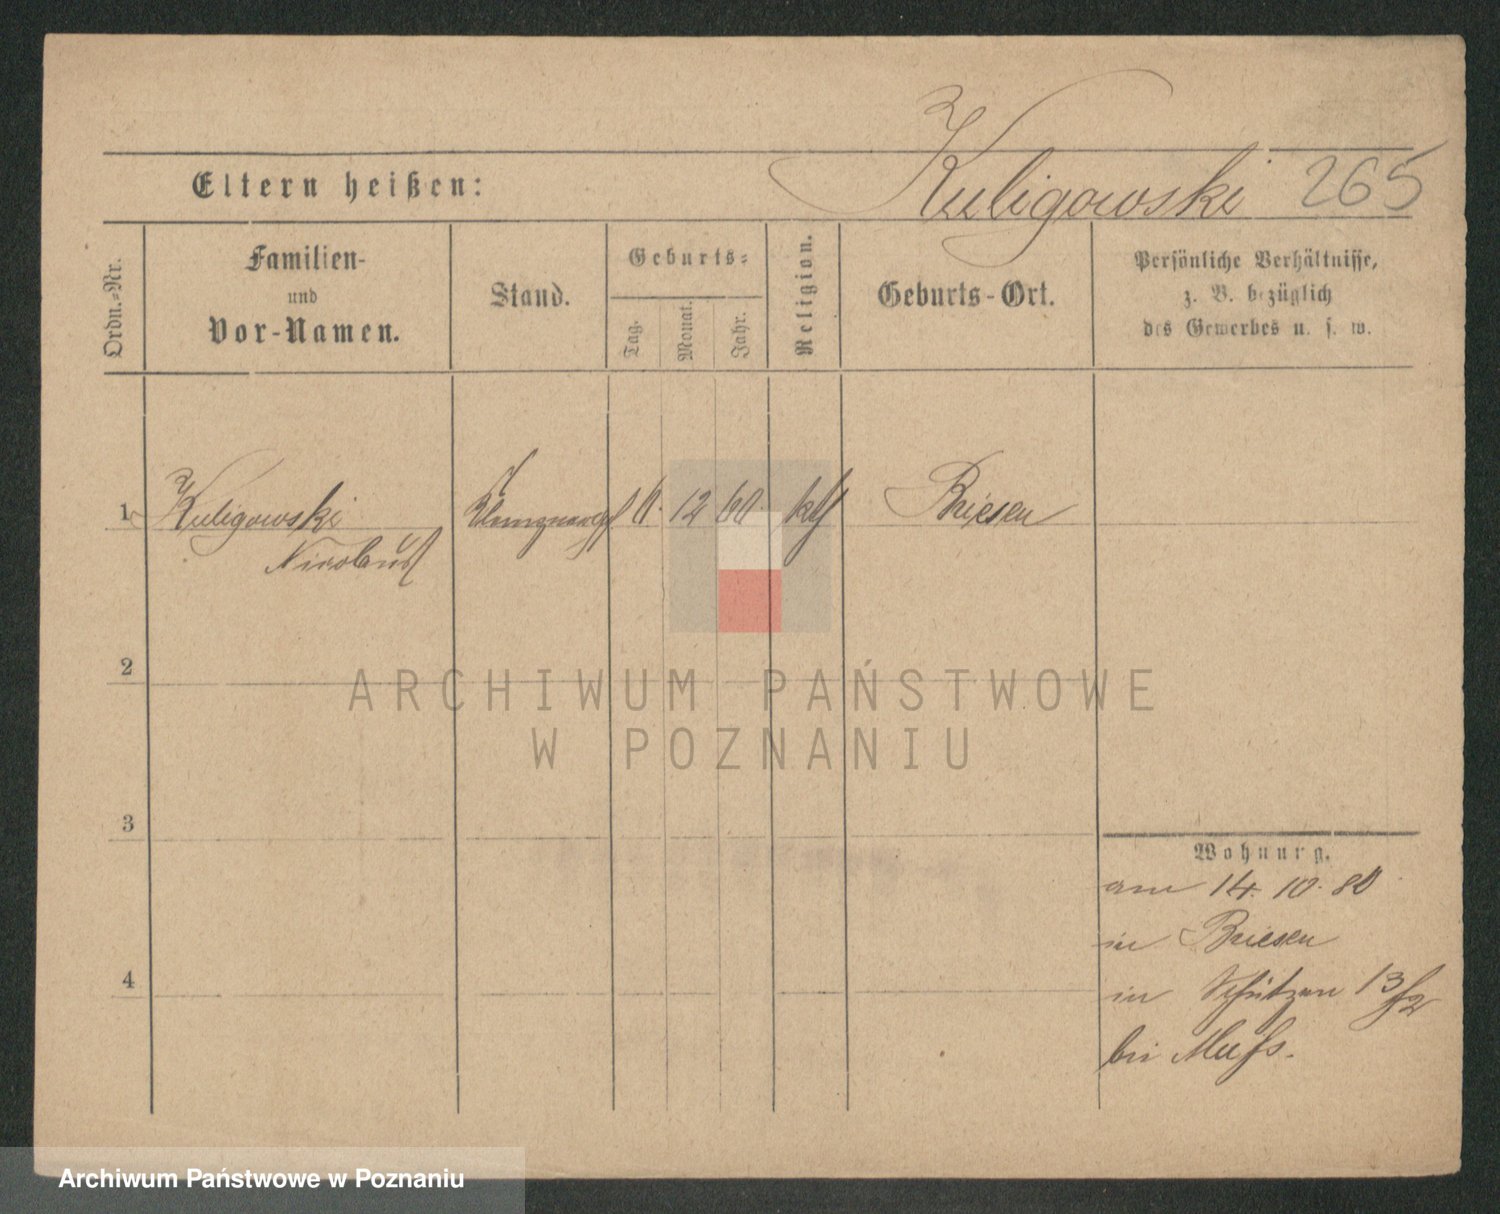 Kuligowski 265
Eltern heißen:
Ordn.-Nr.
Familien-
und
Vor-Namen.
Stand.
Geburts-
Tag.
Monat.
Jahr.
Religion.
Geburts-Ort.
Persönliche Verhältnisse,
z. B. bezüglich
des Gewerbes u. s. w.
1 Kuligowski 6. 12 60. kth Briesen
Nicolaus
2
ARCHIWUM PAŃSTWOWE
W POZNANIU
3
Wohnung.
am 14. 10. 80
in Briesen
4
in Schützen 13
bei
Archiwum Państwowe w Poznaniu